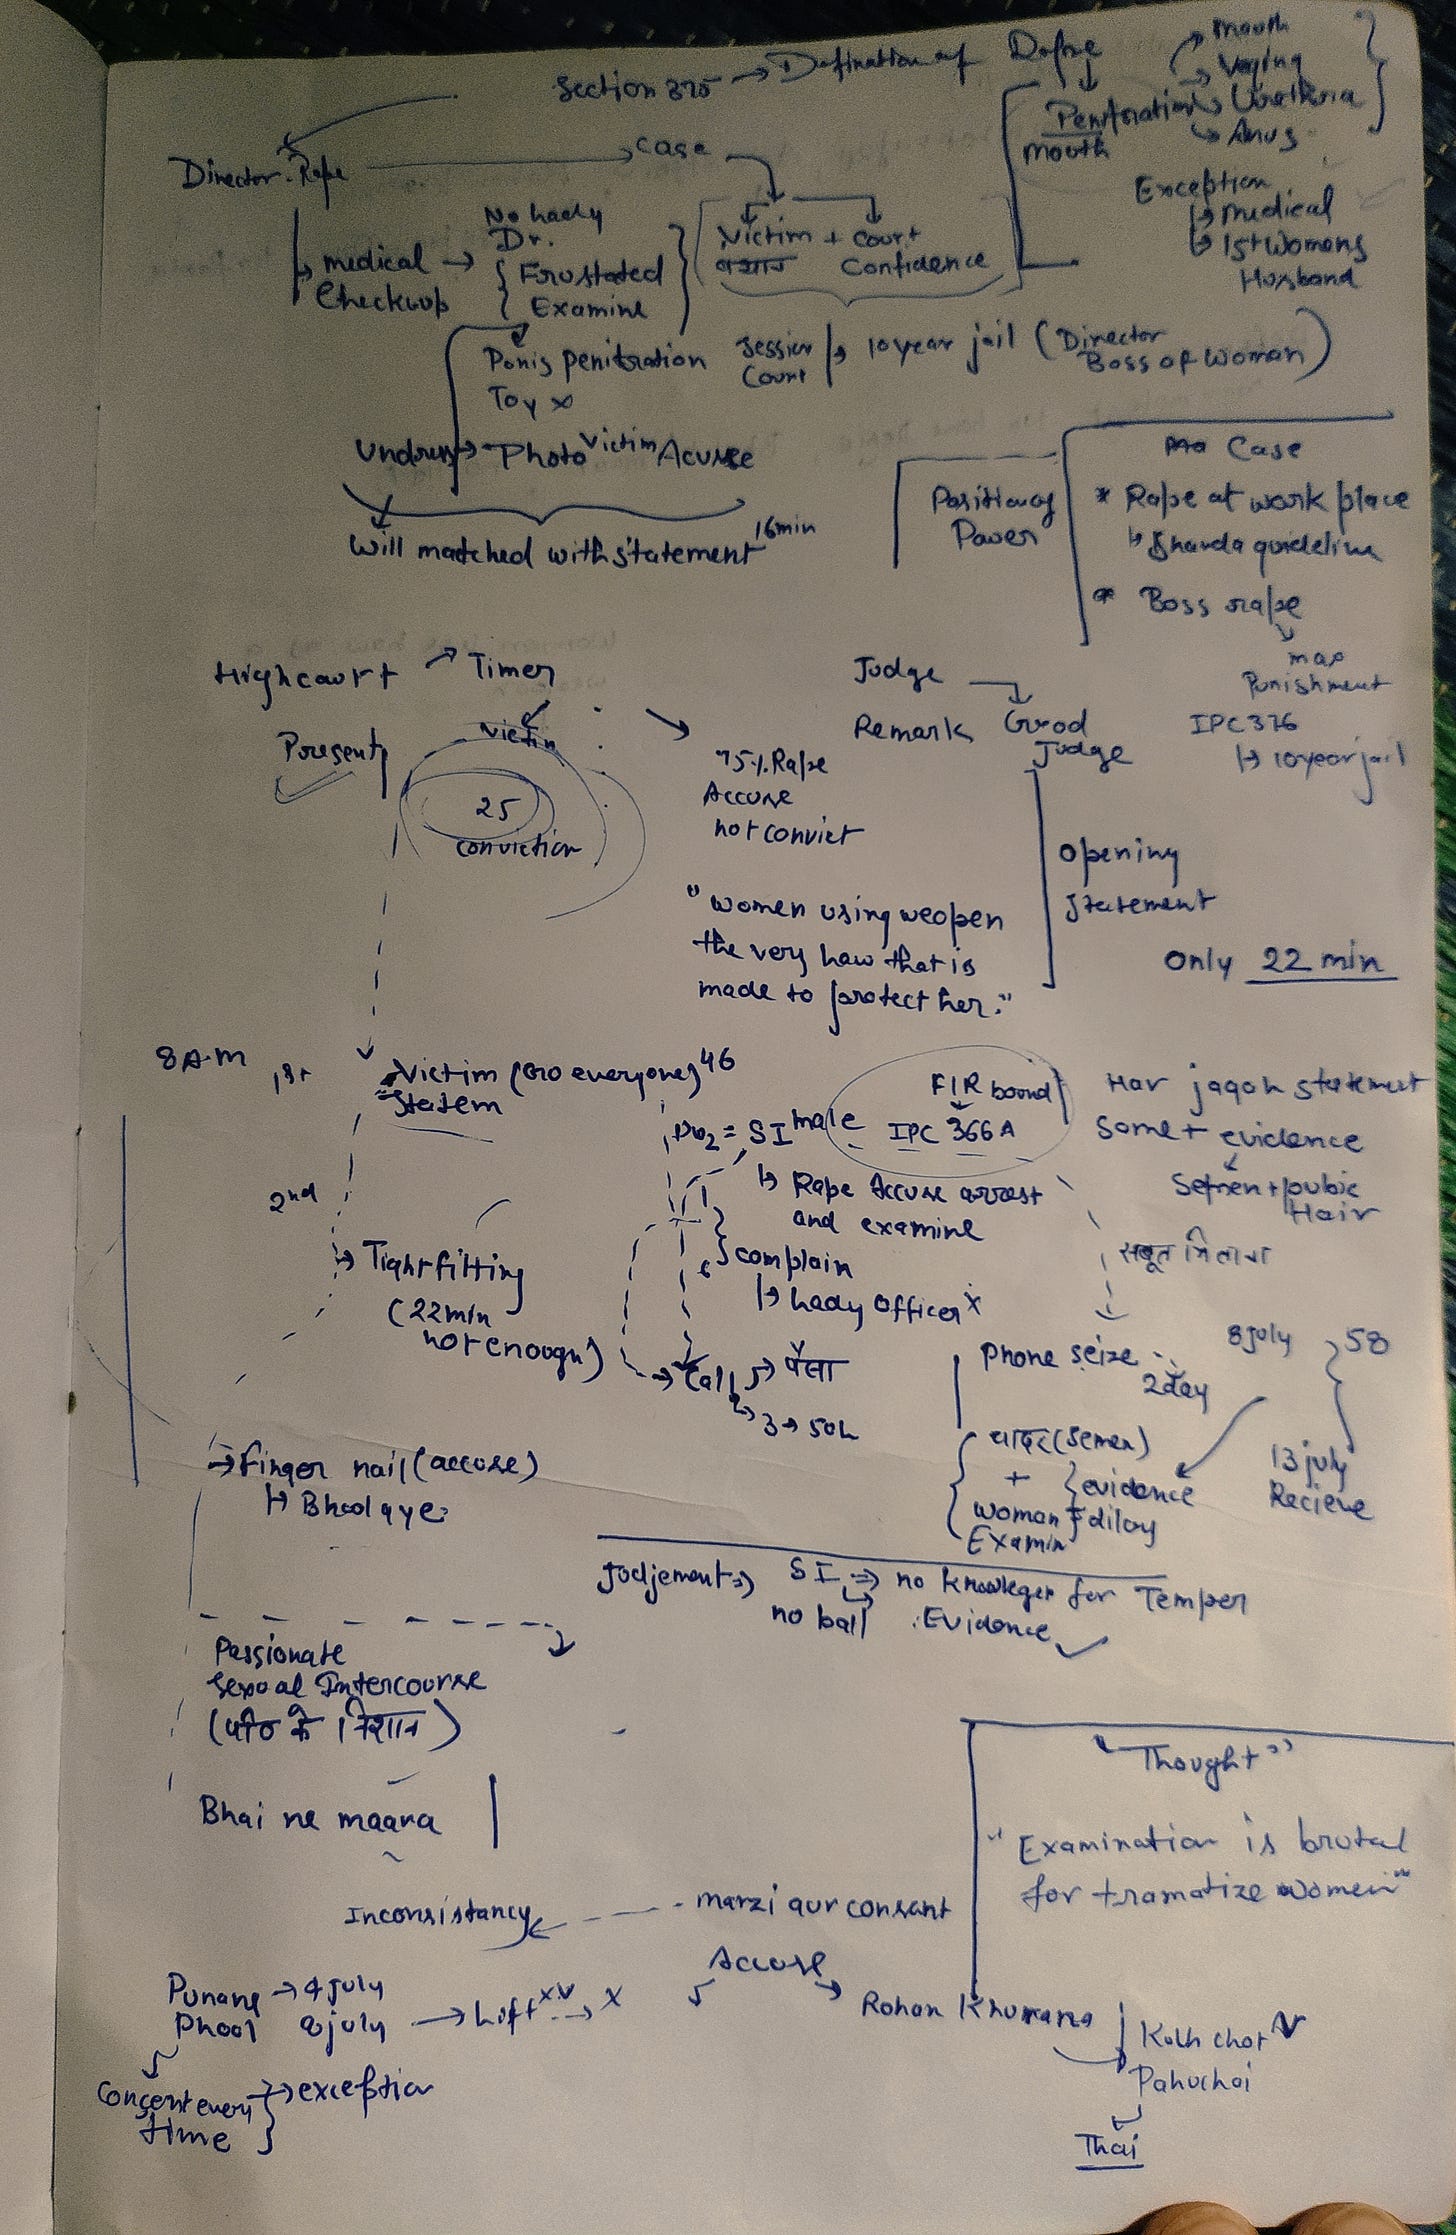 Section 375 → Defination of Rape
mouth
Vagina
Penitration → Urethra
Anus
mouth
Exception
↳ medical
↳ 15+ womens
Husband
Director - Rape → case
Victim + Court
बयान Confidence
medical → No lady
Checkup Dr.
Frustated
Examine
Penis penitration
Toy x
Session
Court ↳ 10 year jail (Director
Boss of woman)
Undress → Photo Victim Acuse
Will matched with statement 16 min
Position of
Power
Case
* Rape at work place
↳ guideline
* Boss rape
↳ max
Punishment
IPC 376
↳ 10 year jail
Highcourt → Timer
Present
Victim
25
conviction
75% Rape
Accuse
not convict
Judge
Remark Good
Judge
"women using weopen
the very law that is
made to protect her."
Opening
statement
only 22 min
8 A.M
1st Victim everyone) 46
Statem
PW2 = SI male
↳ Rape Accuse arrest
and examine
complain
↳ Lady Officer x
FIR bound
IPC 366A
Har jagah statement
same + evidence
Semen + pubic
Hair
सबूत मिटाना
2nd
↳ Tight fitting
(22 min
not enough)
→ Call → पैसा
↳ 3 → 50L
Phone seize
2 day
8 July } 58
13 july
Recieve
चादर (Semen)
+
woman
Examin
evidence
dilay
→ Finger nail (accuse)
↳ Bhool gye
Judjement ⇒ SI ⇒ no knowleger for Temper
no ball Evidence ✓
Passionate
Sexual Intercourse
(पीठ के निशान)
Bhai ne maara
"Thought"
"Examination is brutal
for tramatize women"
Inconsistancy ← marzi aur consent
Accuse
→ Rohan Khurana
Punane → 4 july
Phool 8 july → Lift x✓ → x
Consent every
time } → exception
Pahuchai
Thai